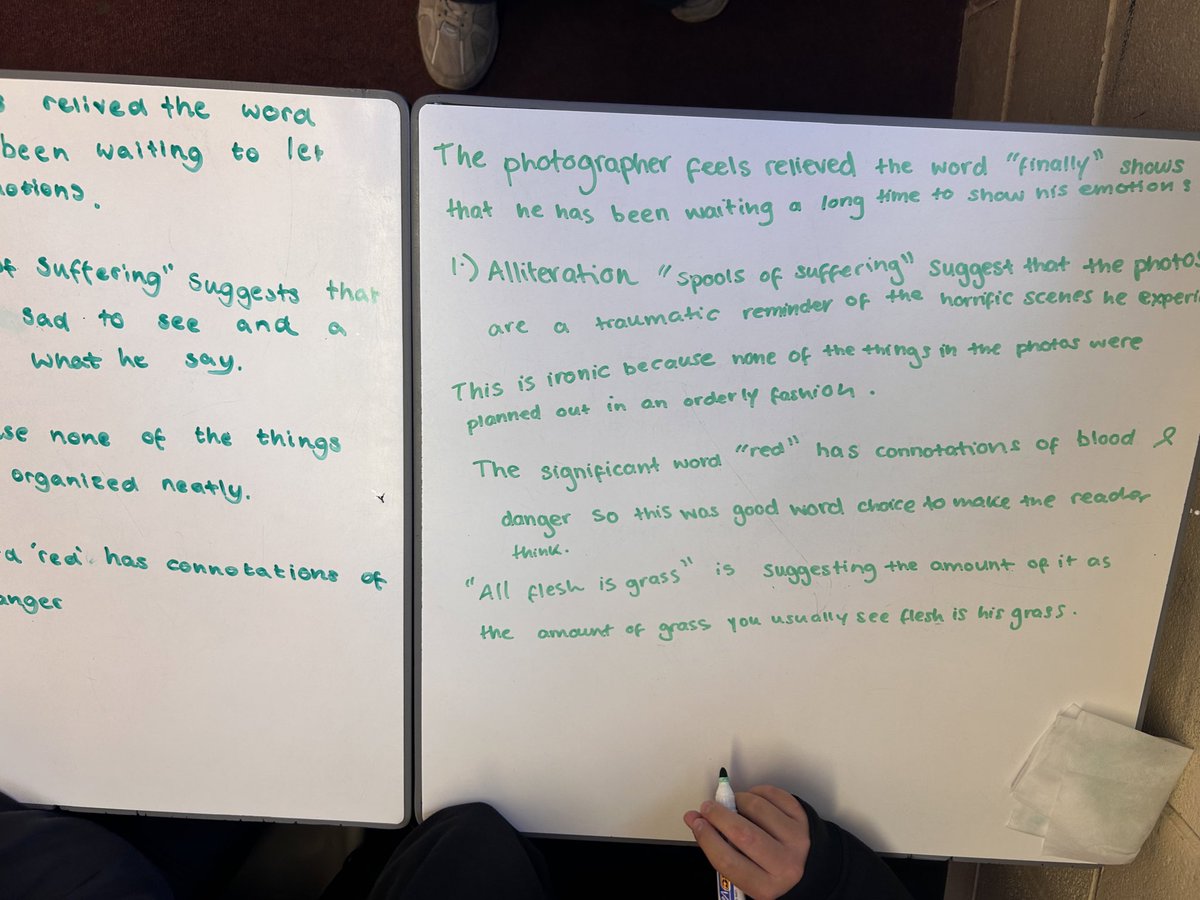 relived the word
been waiting to let
of suffering" suggests that
sad to see and a
what he say.
none of the things
organized neatly.
'red' has connotations of
The photographer feels relieved the word "finally" shows
that he has been waiting a long time to show his emotions
1.) Alliteration "spools of suffering" suggest that the photos
are a traumatic reminder of the horrific scenes he
This is ironic because none of the things in the photos were
planned out in an orderly fashion.
The significant word "red" has connotations of blood &
danger so this was good word choice to make the reader
think.
"All flesh is grass" is suggesting the amount of it as
the amount of grass you usually see flesh is his grass.